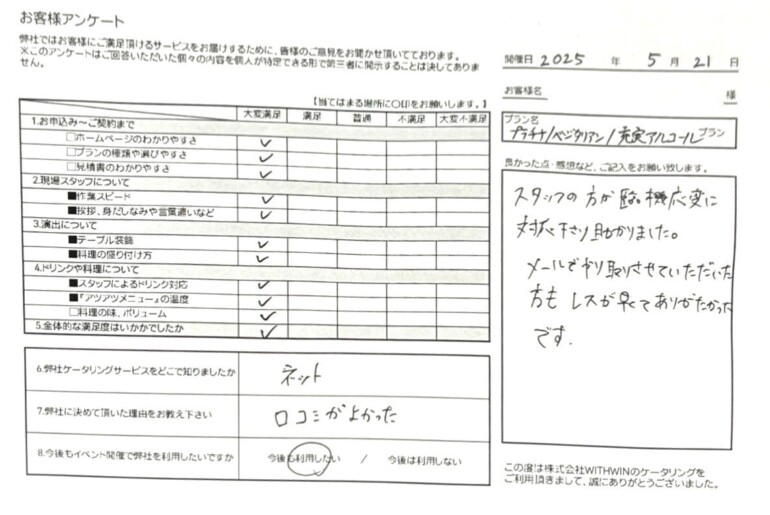 お客様アンケート
弊社ではお客様にご満足頂けるサービスをお届けするために、皆様のご意見をお聞かせ頂いております。
※このアンケートはご回答いただいた個々の内容を個人が特定できる形で第三者に開示することは決してありま
せん。
【当てはまる場所に〇印をお願いします。】
大変満足 満足 普通 不満足 大変不満足
1.お申込み～ご契約まで
□ホームページのわかりやすさ ✓
□プランの種類や選びやすさ ✓
□見積書のわかりやすさ ✓
2.現場スタッフについて
■作業スピード ✓
■挨拶、身だしなみや言葉遣いなど ✓
3.演出について
■テーブル装飾 ✓
■料理の盛り付け方 ✓
4.ドリンクや料理について
■スタッフによるドリンク対応 ✓
■『アツアツメニュー』の温度 ✓
□料理の味、ボリューム ✓
5.全体的な満足度はいかがでしたか ✓
6.弊社ケータリングサービスをどこで知りましたか ネット
7.弊社に決めて頂いた理由をお教え下さい 口コミがよかった
8.今後もイベント開催で弊社を利用したいですか 今後も利用したい / 今後は利用しない
開催日 2025 年 5 月 21 日
お客様名 様
プラン名
プラチナ/ベジタリアン/充実アルコール プラン
良かった点・感想など、ご記入をお願い致します。
スタッフの方が臨機応変に
対応下さり助かりました。
メールでやり取りさせていただいた
方も レスが早くてありがたかった
です.
この度は株式会社WITHWINのケータリングを
ご利用頂きまして、誠にありがとうございました。